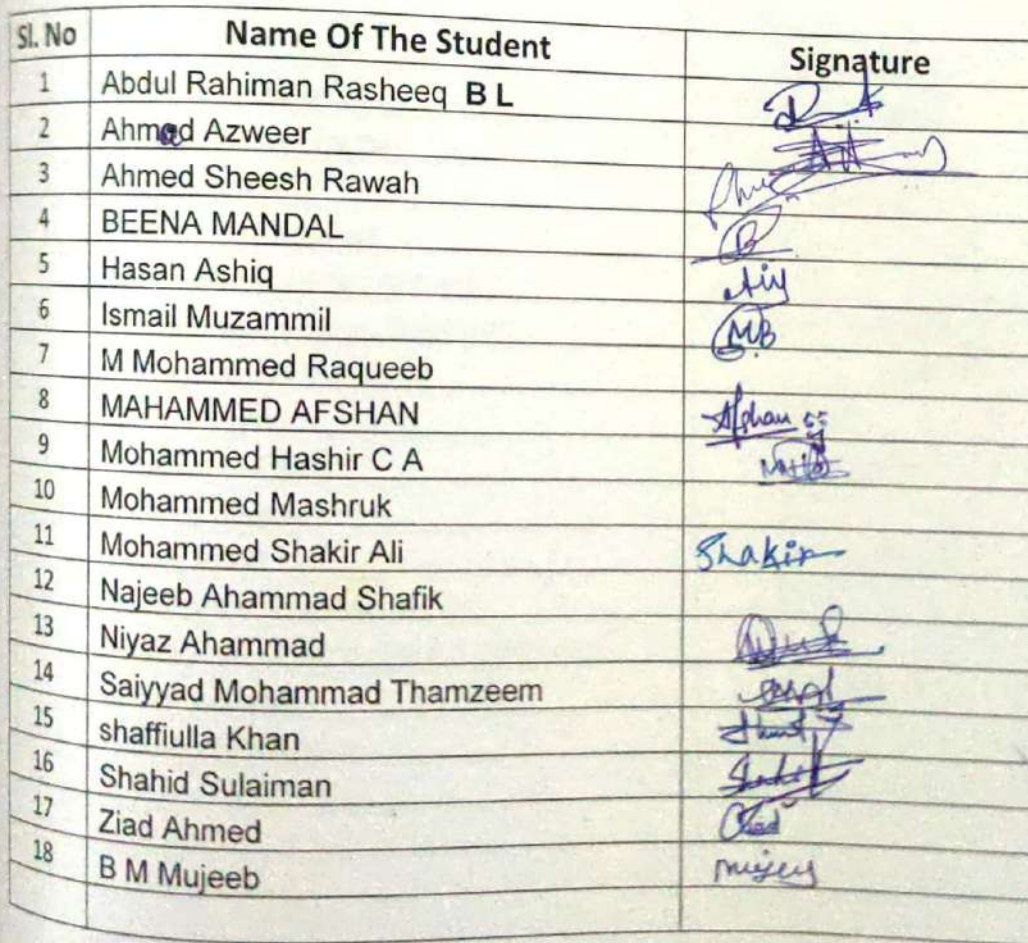 Sl. No Name Of The Student Signature
1 Abdul Rahiman Rasheeq B L
2 Ahmed Azweer
3 Ahmed Sheesh Rawah
4 BEENA MANDAL B
5 Hasan Ashiq
6 Ismail Muzammil MB
7 M Mohammed Raqueeb
8 MAHAMMED AFSHAN Afshan
9 Mohammed Hashir C A
10 Mohammed Mashruk
11 Mohammed Shakir Ali Shakir
12 Najeeb Ahammad Shafik
13 Niyaz Ahammad
14 Saiyyad Mohammad Thamzeem
15 shaffiulla Khan
16 Shahid Sulaiman
17 Ziad Ahmed
18 B M Mujeeb